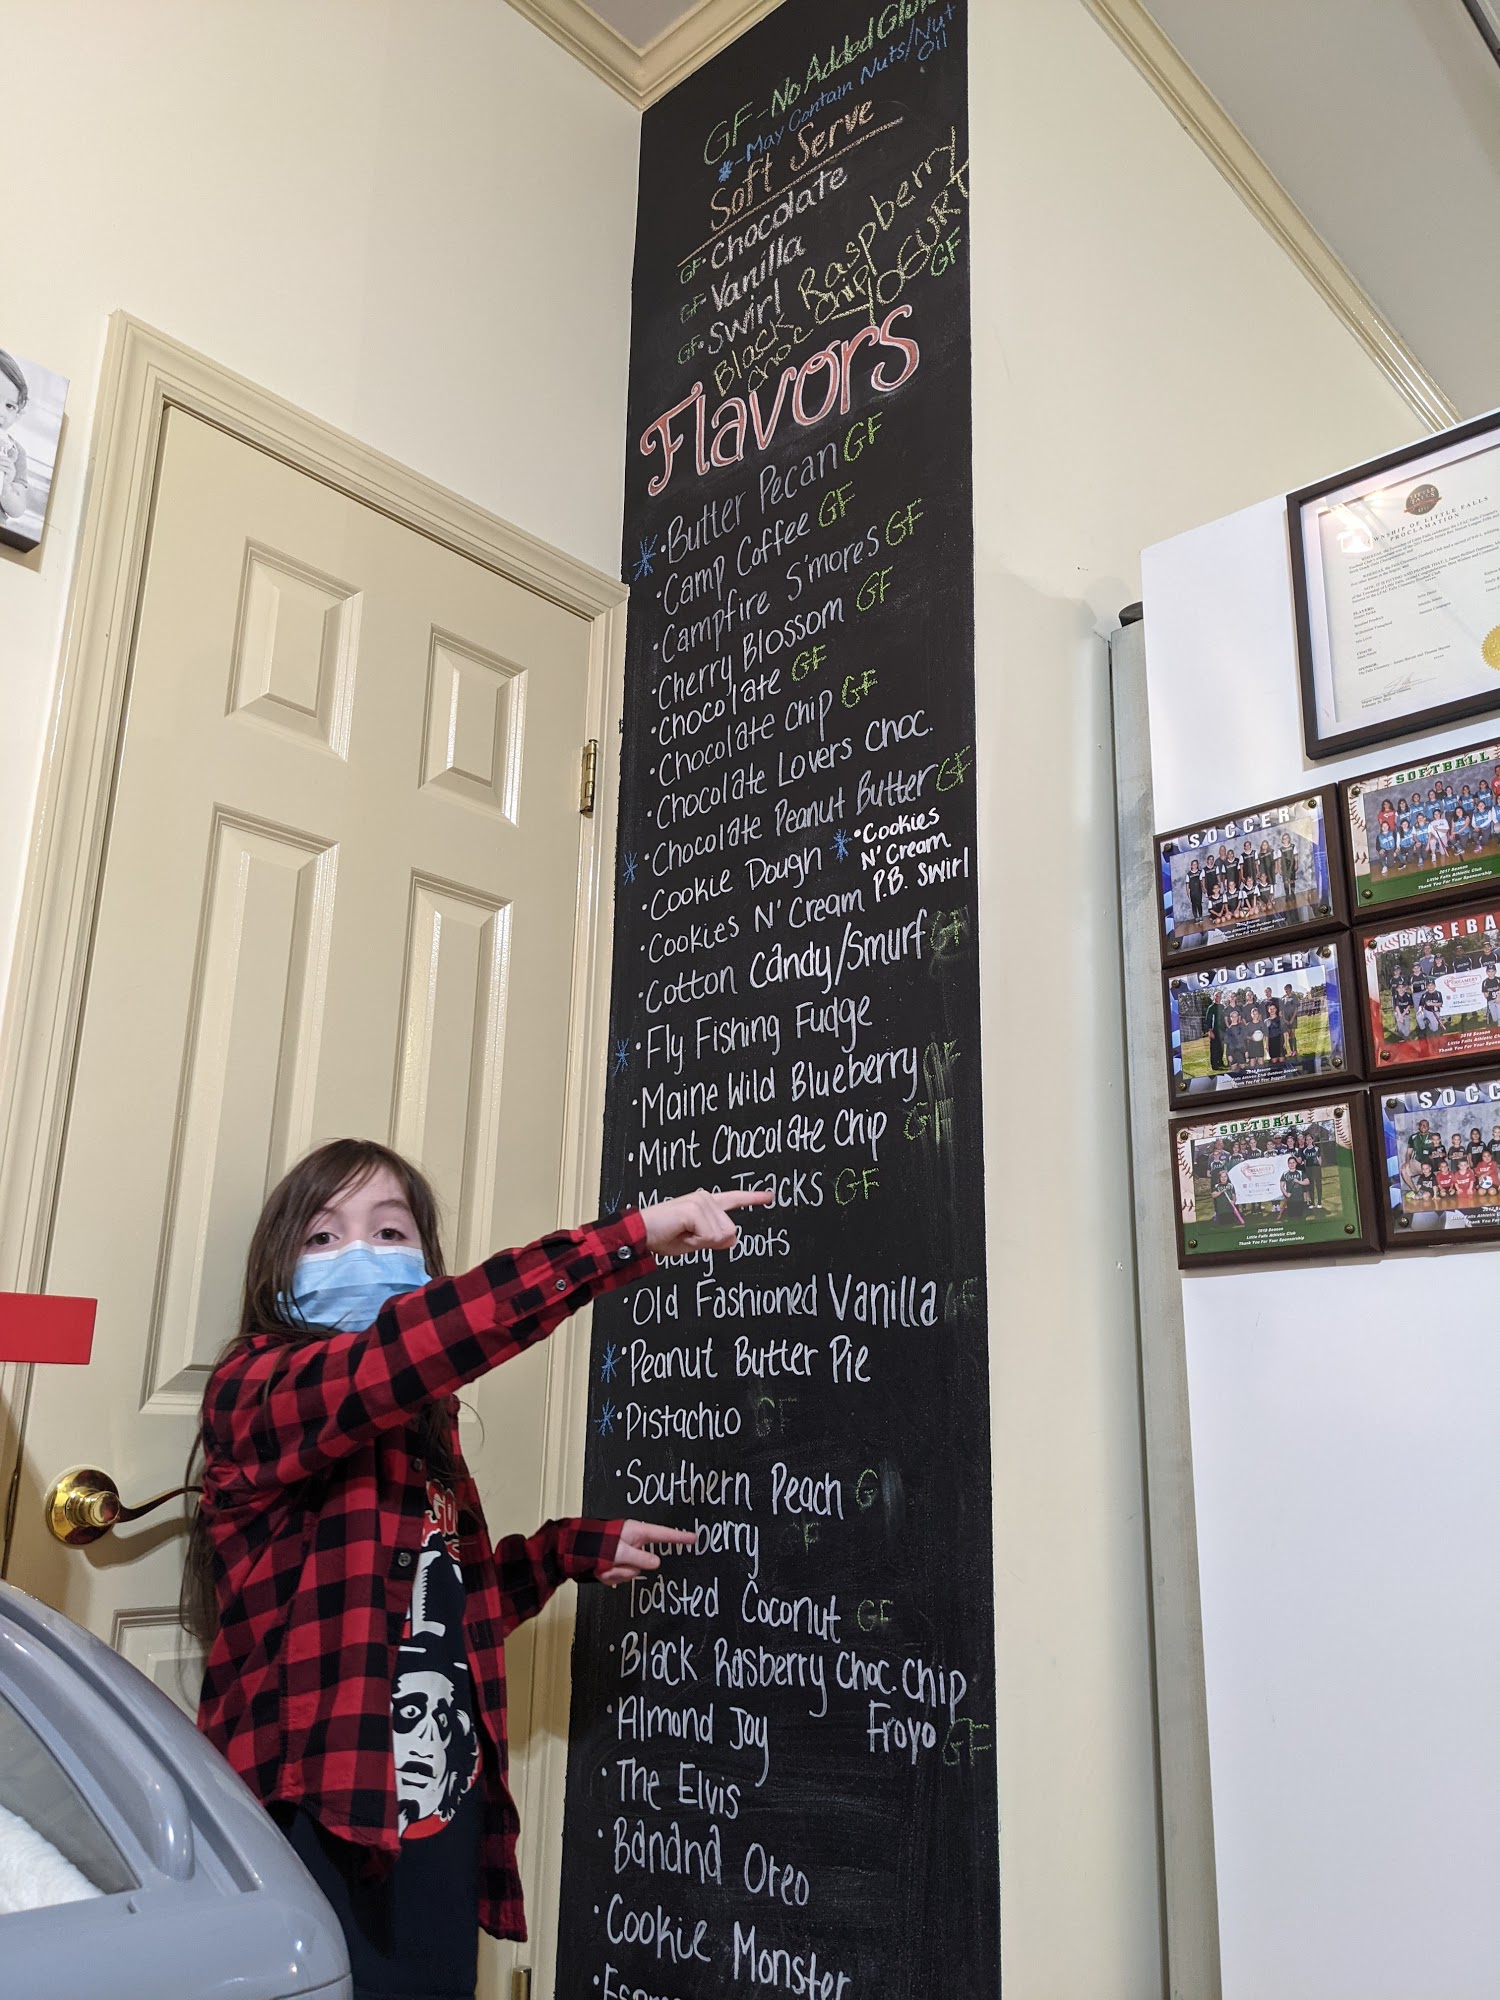 GF - No Added Gluten
* - May Contain Nuts/Nut
Oil
Soft Serve
GF • Chocolate
GF • Vanilla
GF • Swirl
Black Raspberry
Choc Chip YOGURT
GF
Flavors
* • Butter Pecan GF
• Camp Coffee GF
• Campfire S'mores GF
• Cherry Blossom GF
• Chocolate GF
• Chocolate Chip GF
• Chocolate Lovers Choc.
* • Chocolate Peanut Butter GF
• Cookie Dough
* • Cookies
N' Cream
P.B. Swirl
• Cookies N' Cream
• Cotton Candy/Smurf GF
* • Fly Fishing Fudge
• Maine Wild Blueberry GF
• Mint Chocolate Chip GF
* Tracks GF
Boots
• Old Fashioned Vanilla GF
* • Peanut Butter Pie
* • Pistachio GF
• Southern Peach G
GF
Toasted Coconut GF
• Black Rasberry Choc. Chip
Froyo GF
• Almond Joy
• The Elvis
• Banana Oreo
• Cookie Monster
TOWNSHIP OF LITTLE FALLS
PROCLAMATION
SOCCER
SOFTBALL
2017 Season
Little Falls Athletic Club
Thank You For Your Sponsorship
SOCCER
BASEBA
SOFTBALL
Little Falls Athletic Club
Thank You For Your Sponsorship
SOCC